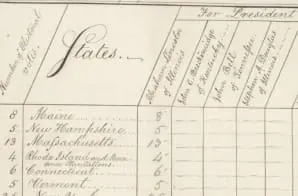 For President
Number of Electoral
votes.
States.
Abraham Lincoln
of Illinois
John C. Breckinridge
of Kentucky
John Bell
of Tennessee
Stephen A. Douglas
of Illinois
8 Maine 8
5 New Hampshire 5
13 Massachusetts 13
4 Rhode Island and Prov-
idence Plantations 4
6 Connecticut 6
5 Vermont 5
New York